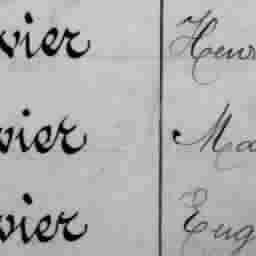 vier Henr
vier Ma
vier Eug